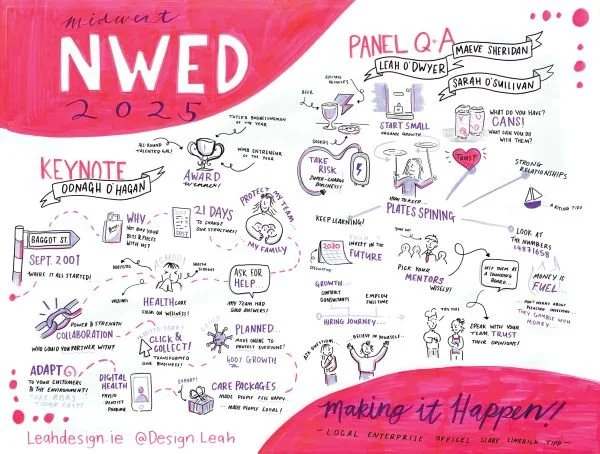 midwest
NWED
2025
KEYNOTE
OONAGH O'HAGAN
ALL ROUND
TALENTED GAL!
TATLER BUSINESSWOMAN
OF THE YEAR
WMB ENTREPRENEUR
OF THE YEAR
AWARD
winner!
BAGGOT ST.
SEPT. 2001
WHERE IT ALL STARTED!
WHY
NOT BUY YOUR
BITS & PIECES
WITH US?
COST
21 DAYS
TO CHANGE
OUR STRUCTURE!
PROTECT MY TEAM
MY FAMILY
HEALTHCARE
FOCUS ON WELLNESS!
ASK FOR
HELP...
MY TEAM HAD
GOOD ANSWERS!
POWER & STRENGTH
COLLABORATION
WHO COULD YOU PARTNER WITH?
CLICK &
COLLECT!
TRANSFORMED
OUR BUSINESS!
PLANNED...
MOVE ONLINE TO
PROTECT EVERYONE!
GROWTH
ADAPT
TO YOUR CUSTOMERS
& THE ENVIRONMENT!
TAKE RISKS
THINK FAST!
DIGITAL
HEALTH
PHYSIO
DENTIST
PHARMA
EXPORT!
CARE PACKAGES
MADE PEOPLE FEEL HAPPY
MADE PEOPLE LOYAL!
Leahdesign.ie @Design.Leah
PANEL Q+A
MAEVE SHERIDAN
LEAH O'DWYER
SARAH O'SULLIVAN
BEER
COOKIES
START SMALL
ORGANIC GROWTH
WHAT DO YOU HAVE?
CANS!
WHAT CAN YOU DO
WITH THEM?
TAKE
RISK
SUPER-CHARGE
BUSINESS!
TRUST!
STRONG
RELATIONSHIPS
HOW TO KEEP...
PLATES SPINING
KEEP LEARNING!
A RISING TIDE
LOOK AT
THE NUMBERS
2030
INVEST IN THE
FUTURE
YOU DO!
PICK YOUR
MENTORS
WISELY!
USE THEM AS A
SOUNDING
BOARD...
MONEY IS
FUEL
GROWTH...
CONTRACT
CONSULTANTS
EMPLOY
FULLTIME
HIRING JOURNEY...
ASK QUESTIONS
BELIEVE IN YOURSELF...
TRY THIS!
SPEAK WITH YOUR
TEAM. TRUST
THEIR OPINIONS!
THEY GAMBLE WITH
MONEY...
making it Happen!
- LOCAL ENTERPRISE OFFICES CLARE LIMERICK TIPP -